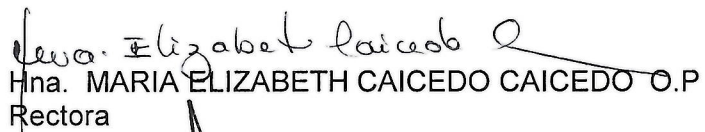 Hna. Elizabet Caicedo
Hna. MARIA ELIZABETH CAICEDO CAICEDO O.P
Rectora